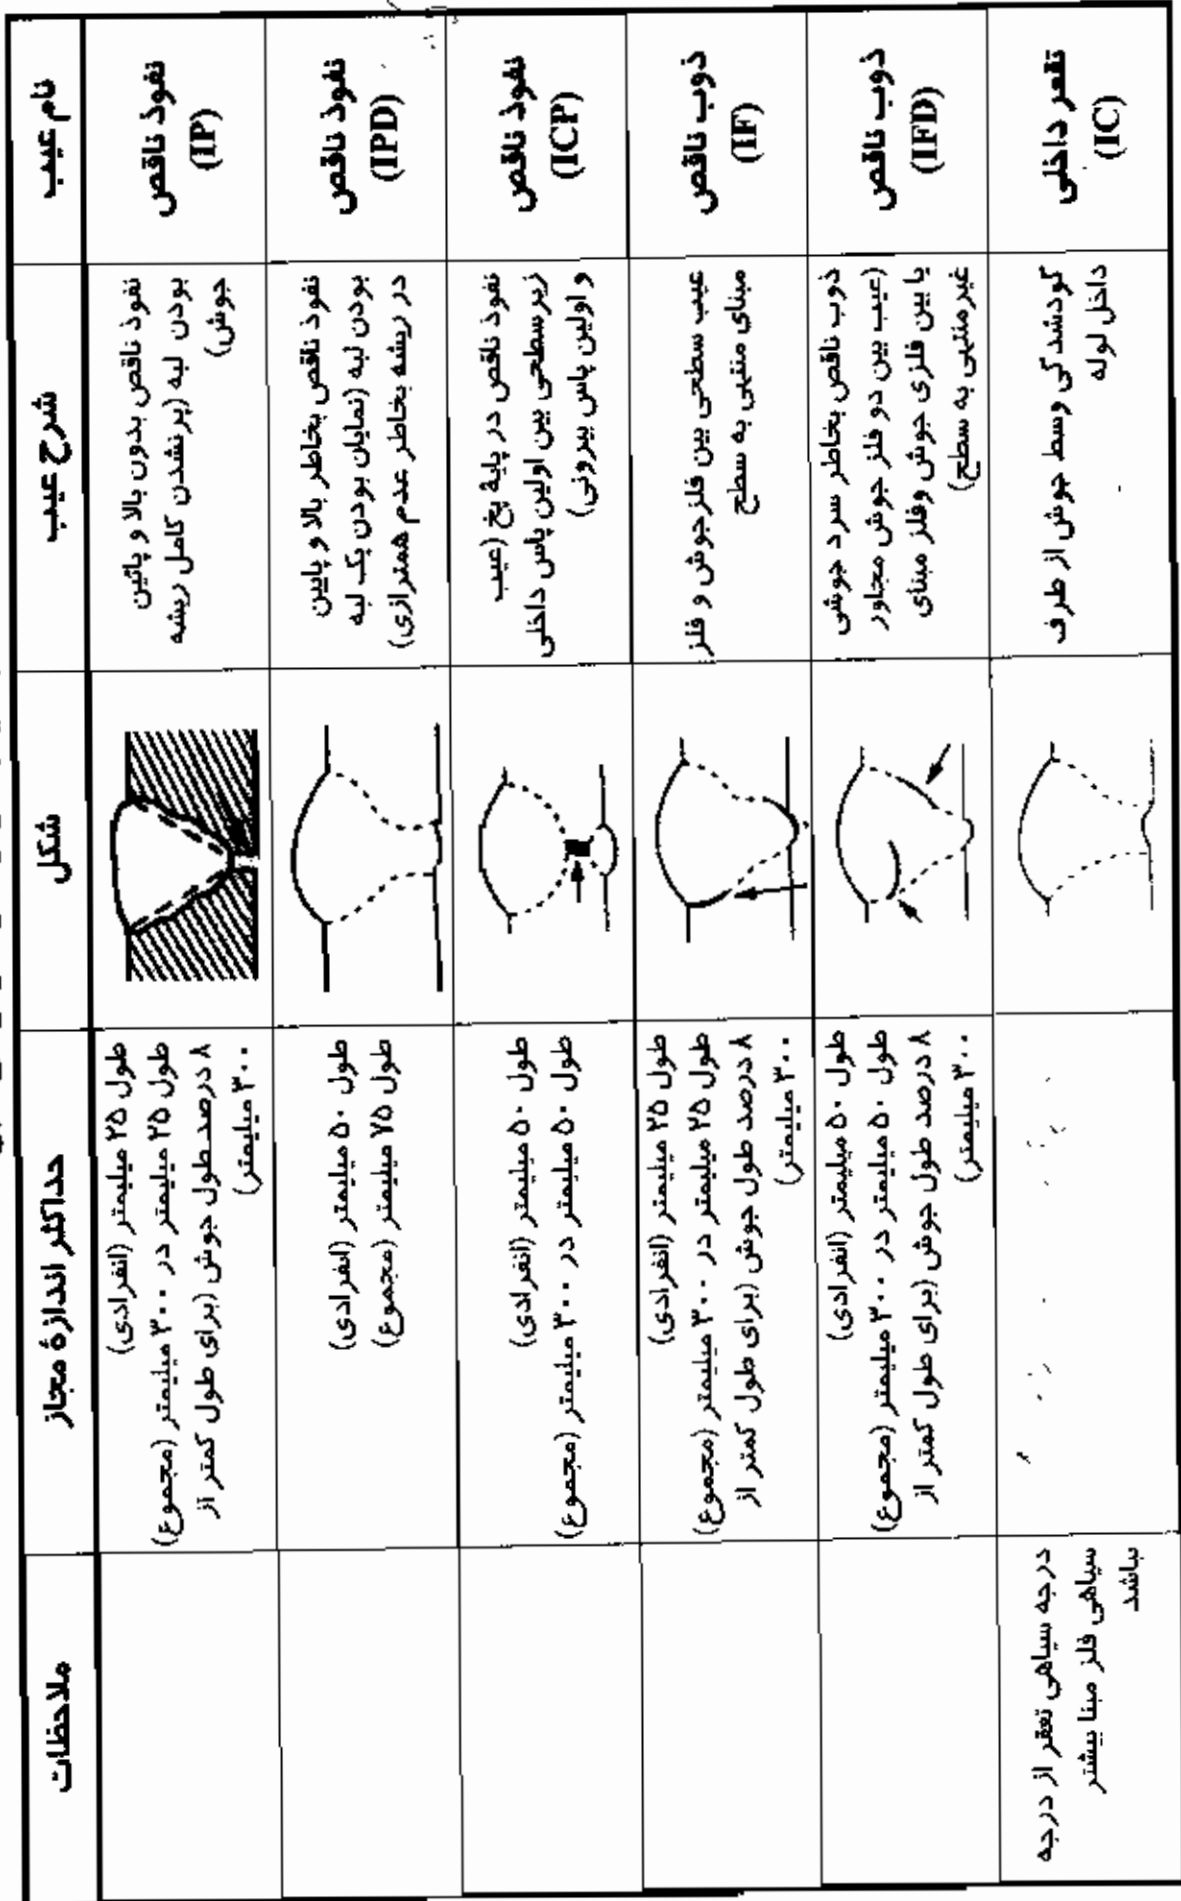 نام عیب
شرح عیب
شکل
حداکثر اندازهٔ مجاز
ملاحظات
نفوذ ناقص
(IP)
نفوذ ناقص بدون بالا و پائین
بودن لبه (پر نشدن کامل ریشه
جوش)
طول ۲۵ میلیمتر (انفرادی)
طول ۲۵ میلیمتر در ۳۰۰ میلیمتر (مجموع)
۸ درصد طول جوش (برای طول کمتر از
۳۰۰ میلیمتر)
نفوذ ناقص
(IPD)
نفوذ ناقص بخاطر بالا و پایین
بودن لبه (نمایان بودن یک لبه
در ریشه بخاطر عدم همترازی)
طول ۵۰ میلیمتر (انفرادی)
طول ۷۵ میلیمتر (مجموع)
نفوذ ناقص
(ICP)
نفوذ ناقص در پایهٔ پخ (عیب
زیرسطحی بین اولین پاس داخلی
و اولین پاس بیرونی)
طول ۵۰ میلیمتر (انفرادی)
طول ۵۰ میلیمتر در ۳۰۰ میلیمتر (مجموع)
ذوب ناقص
(IF)
عیب سطحی بین فلزجوش و فلز
مبنای منتهی به سطح
طول ۲۵ میلیمتر (انفرادی)
طول ۲۵ میلیمتر در ۳۰۰ میلیمتر (مجموع)
۸ درصد طول جوش (برای طول کمتر از
۳۰۰ میلیمتر)
ذوب ناقص
(IFD)
ذوب ناقص بخاطر سرد جوشی
(عیب بین دو فلز جوش مجاور
یا بین فلزی جوش وفلز مبنای
غیرمنتهی به سطح)
طول ۵۰ میلیمتر (انفرادی)
طول ۵۰ میلیمتر در ۳۰۰ میلیمتر (مجموع)
۸ درصد طول جوش (برای طول کمتر از
۳۰۰ میلیمتر)
تقعر داخلی
(IC)
گودشدگی وسط جوش از طرف
داخل لوله
درجه سیاهی تقعر از درجه
سیاهی فلز مبنا بیشتر
نباشد